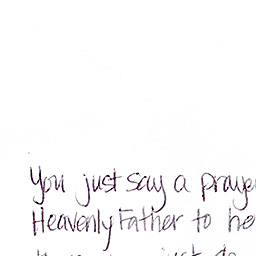 You just say a praye
Heavenly Father to he
just do